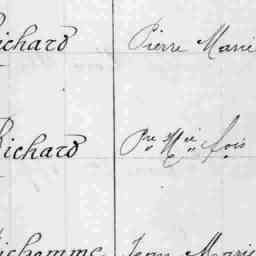 Richard Pierre Marie
Richard Pre Mie fois
Richomme Jean Marie